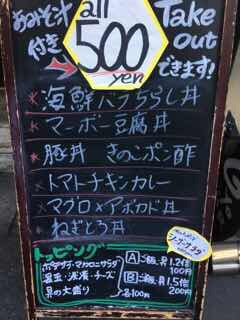 あおみそ汁付き
all 500 yen
Take Out できます!
海鮮バラちらし丼
マーボー豆腐丼
豚丼 きのこポン酢
トマトチキンカレー
マグロ×アボカド丼
ねぎとろ丼
トッピング
ポテサラ・マカロニサラダ
温玉・浅漬・チーズ
具の大盛り 各100円
A ご飯、具1.2倍 100円
B ご飯、具1.5倍 200円